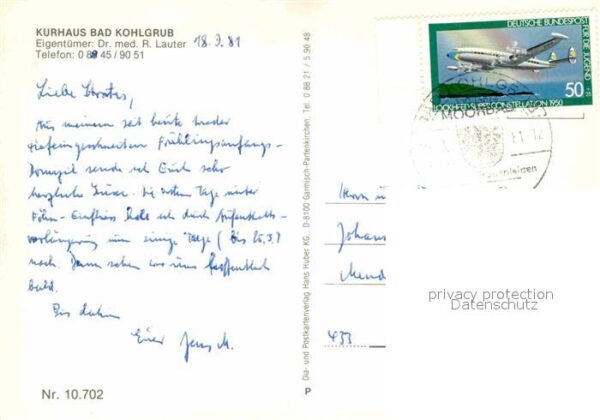 KURHAUS BAD KOHLGRUB
Eigentümer: Dr. med. R. Lauter
Telefon: 0 88 45 / 90 51
18.3.81
Liebe
Aus meinem seit heute wieder
tiefeingeschneiten Frühlingsanfangs-
Domizil sende ich Euch sehr
herzliche Grüsse. Die ersten Tage unter
Föhn-Einfluss hole ich durch Aufenthalts-
verlängerung um einige Tage (bis 26.3.)
nach. Dann sehen wir uns hoffentlich
bald.
Bis dahin
Euer Jens M.
Nr. 10.702
Dia- und Postkartenverlag Hans Huber KG. D-8100 Garmisch-Partenkirchen, Tel. 0 88 21 / 5 90 48
P
DEUTSCHE BUNDESPOST
FÜR DIE JUGEND
+25
50
LOCKHEED SUPER CONSTELLATION 1950
BAD KOHLGRUB
MOORBAD
81-12
Johan
433
privacy protection
Datenschutz